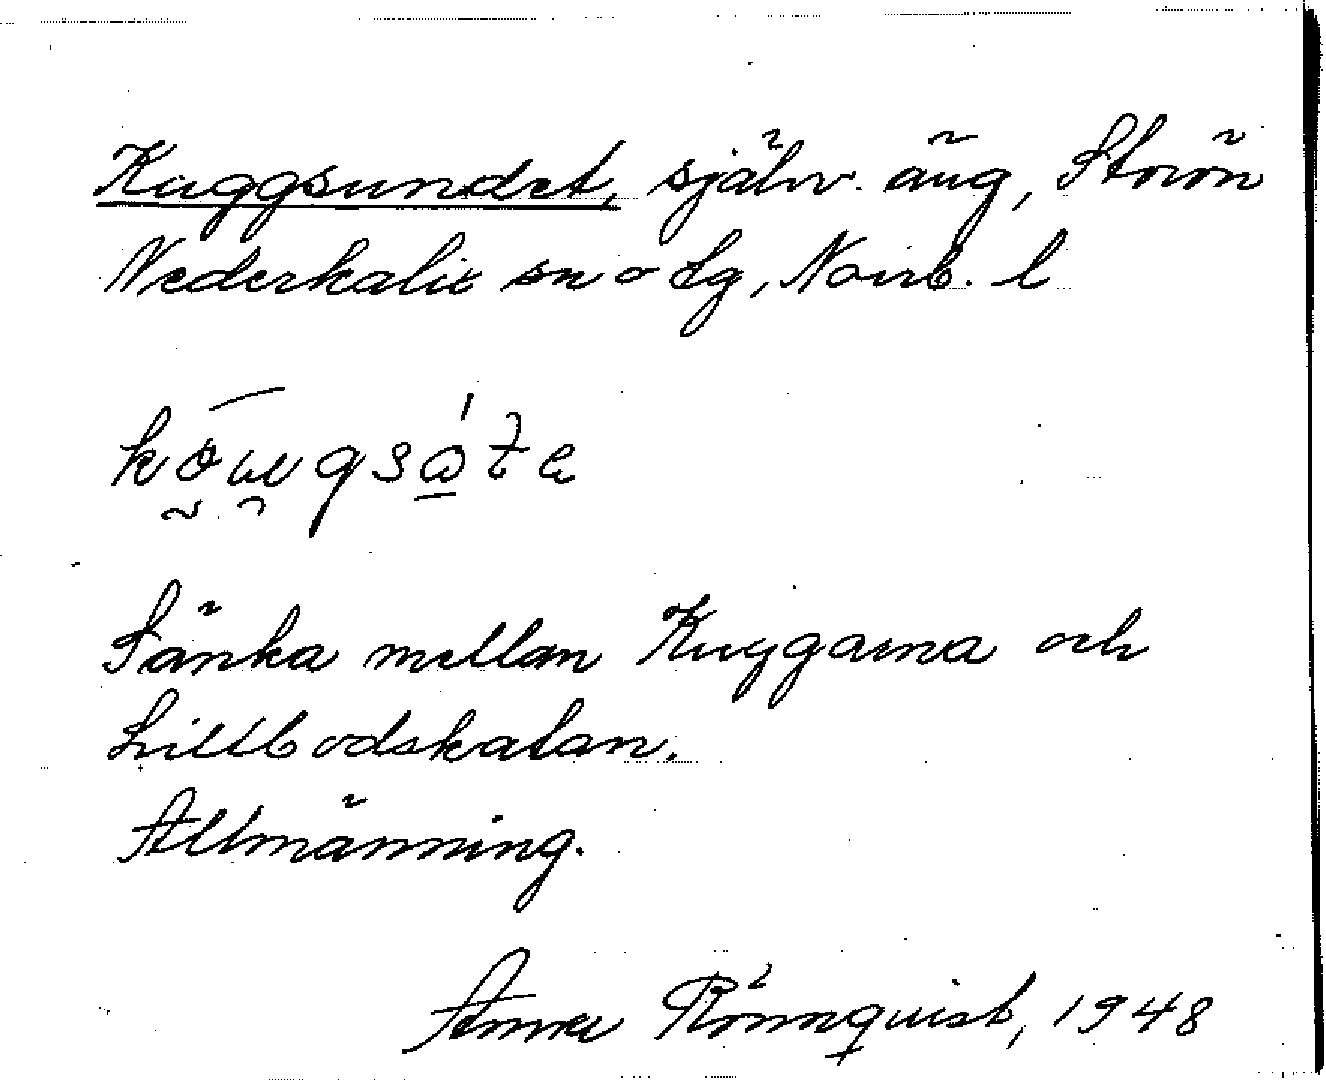 Kuggsundet, självv. äng, Storön
Nederkalix sn o tg, Norrb. l
Sänka mellan Kuggarna och
Lillbodskatan.
Allmänning.
Anna Rönnquist, 1948